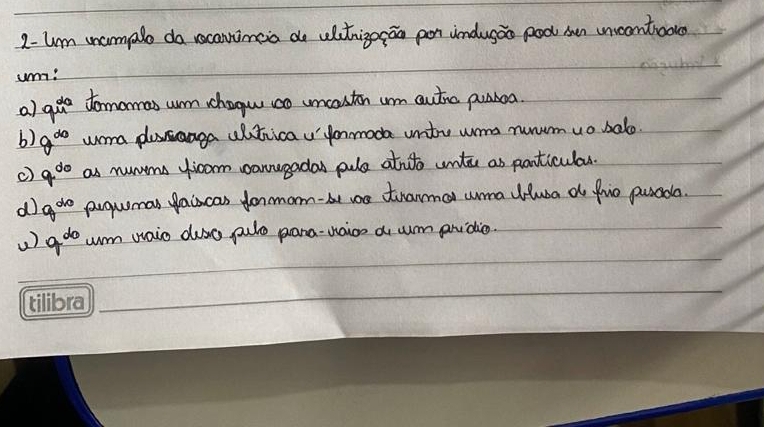 2- Um exemplo da ocorrência de eletrização por indução pode ser encontrado
em:
a) qdo tomamos um choque ao encostar em outra pessoa.
b) qdo uma descarga elétrica é formada entre uma nuvem e o solo.
c) qdo as nuvens ficam carregadas pelo atrito entre as partículas.
d) qdo pequenas faíscas formam-se ao tirarmos uma blusa de frio pesada.
e) qdo um raio desce pelo para-raios de um prédio.
tilibra